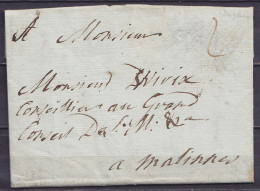 A Monsieur
2
Monsieur Wirix
Conseillier au Grand
Conseil De S: M: &a
a malinnes